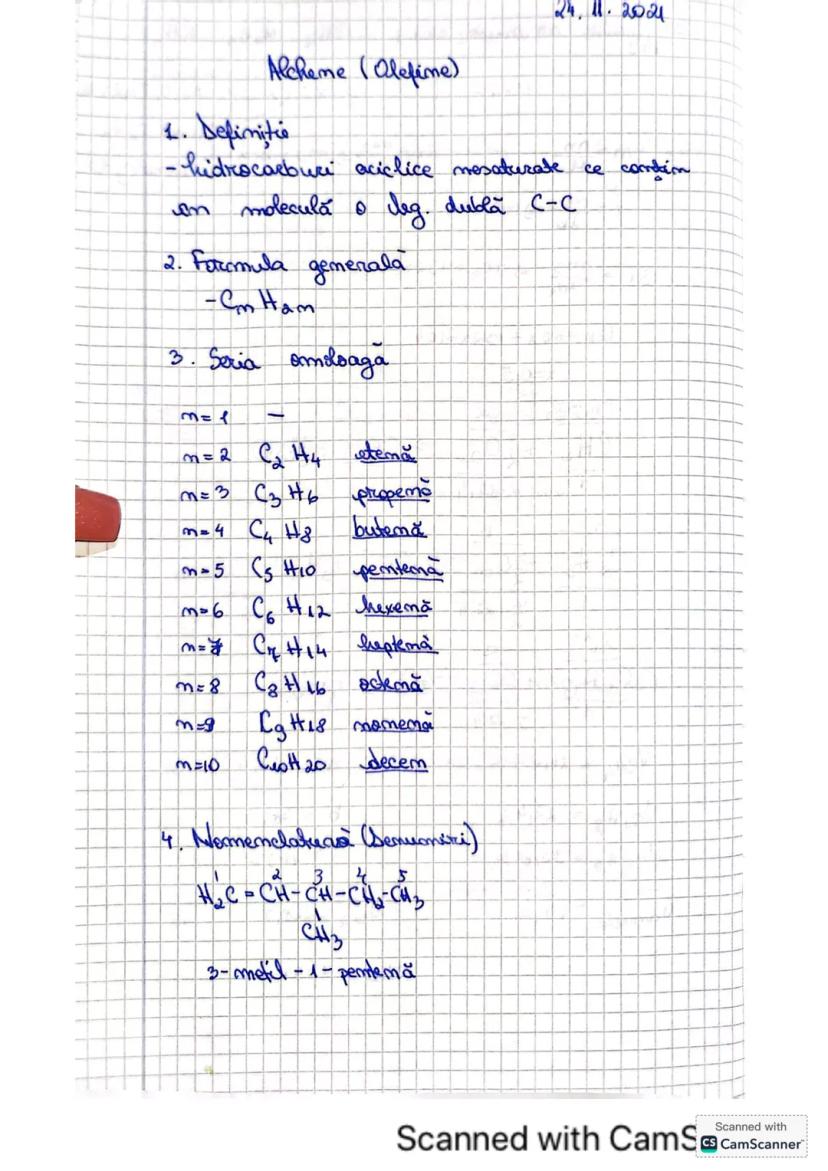 24. 11. 2021
Alchene (Olefine)
1. Definiție
- hidrocarburi aciclice nesaturate ce conțin
în moleculă o leg. dublă C-C
2. Formula generală
- CnH2n
3. Seria omoloagă
n=1 —
n=2 C2H4 etenă
n=3 C3H6 propenă
n=4 C4H8 butenă
n=5 C5H10 pentenă
n=6 C6H12 hexenă
n=7 C7H14 heptenă
n=8 C8H16 octenă
n=9 C9H18 nonenă
n=10 C10H20 decen
4. Nomenclatură (Denumiri)
1 2 3 4 5
H2C=CH-CH-CH2-CH3
CH3
3-metil-1-pentenă
Scanned with CamS
Scanned with
CS CamScanner